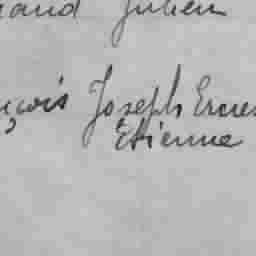 nand Julien
nçois Joseph Ernes
Etienne